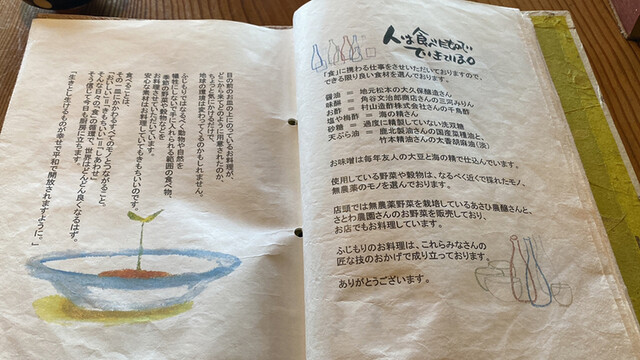 目の前のお皿の上にのっているお料理が、
どこから来てどのように用意されたのか、
ちょっと気にかけるだけで、
地球の環境は変わってくるのかもしれません。
ふじもりではなるべく動物や自然を
犠牲にしないで手に入れられる範囲の食べ物、
季節の野菜や穀物などを
お料理させていただいています。
安心な食材はお料理していてきもちいいのです。
食べることは、
その一皿にかかわるすべてのモノとつながること。
「おいしい」=「きもちいい」=「しあわせ」
そんな日々の“食”の循環で、世界はどんどん良くなるはず。
そう信じて今日も厨房に立ちます。
「生きとし生けるものが幸せで平和で開放されますように。」
人は食べたもので
できている。
「食」に携わる仕事をさせていただいておりますので、
できる限り良い食材を選んでおります。
醤油 = 地元松本の大久保醸造さん
味醂 = 角谷文治郎商店さんの三河みりん
お酢 = 村山造酢株式会社さんの千鳥酢
塩や梅酢 = 海の精さん
砂糖 = 過度に精製していない洗双糖
天ぷら油 = 鹿北製油さんの国産菜種油と、
竹本精油さんの太香胡麻油(淡)
お味噌は毎年友人の大豆と海の精で仕込んでいます。
使用している野菜や穀物は、なるべく近くで採れたモノ、
無農薬のモノを選んでおります。
店頭では無農薬野菜を栽培しているあさひ農醸さんと、
さとわ農園さんのお野菜を販売しており、
お店でもお料理しています。
ふじもりのお料理は、これらみなさんの
匠な技のおかげで成り立っております。
ありがとうございます。